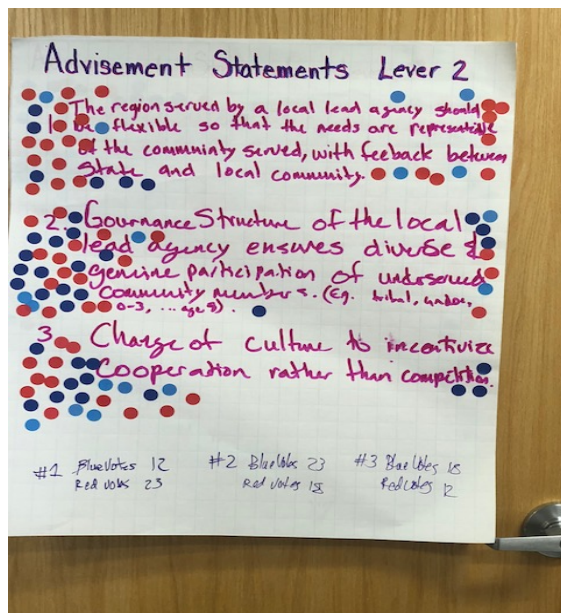 Advisement Statements Lever 2
1. The region served by a local lead agency should
be flexible so that the needs are representitive
of the communinty served, with feeback between
State and local community.
2. Governance Structure of the local
lead agency ensures diverse &
genuine participation of underserved
community members. (Eg. tribal,
0-3, ... age 3).
3. Change of culture to incentivize
Cooperation rather than competition.
#1 Blue Votes 12 #2 Blue Votes 23 #3 Blue Votes 18
Red Votes 23 Red Votes 18 Red Votes 12